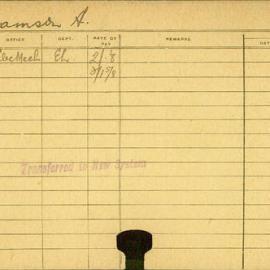 amson A.
OFFICE DEPT. RATE OF PAY REMARKS DAT
Mech El. 2/. 8
Transferred to New System